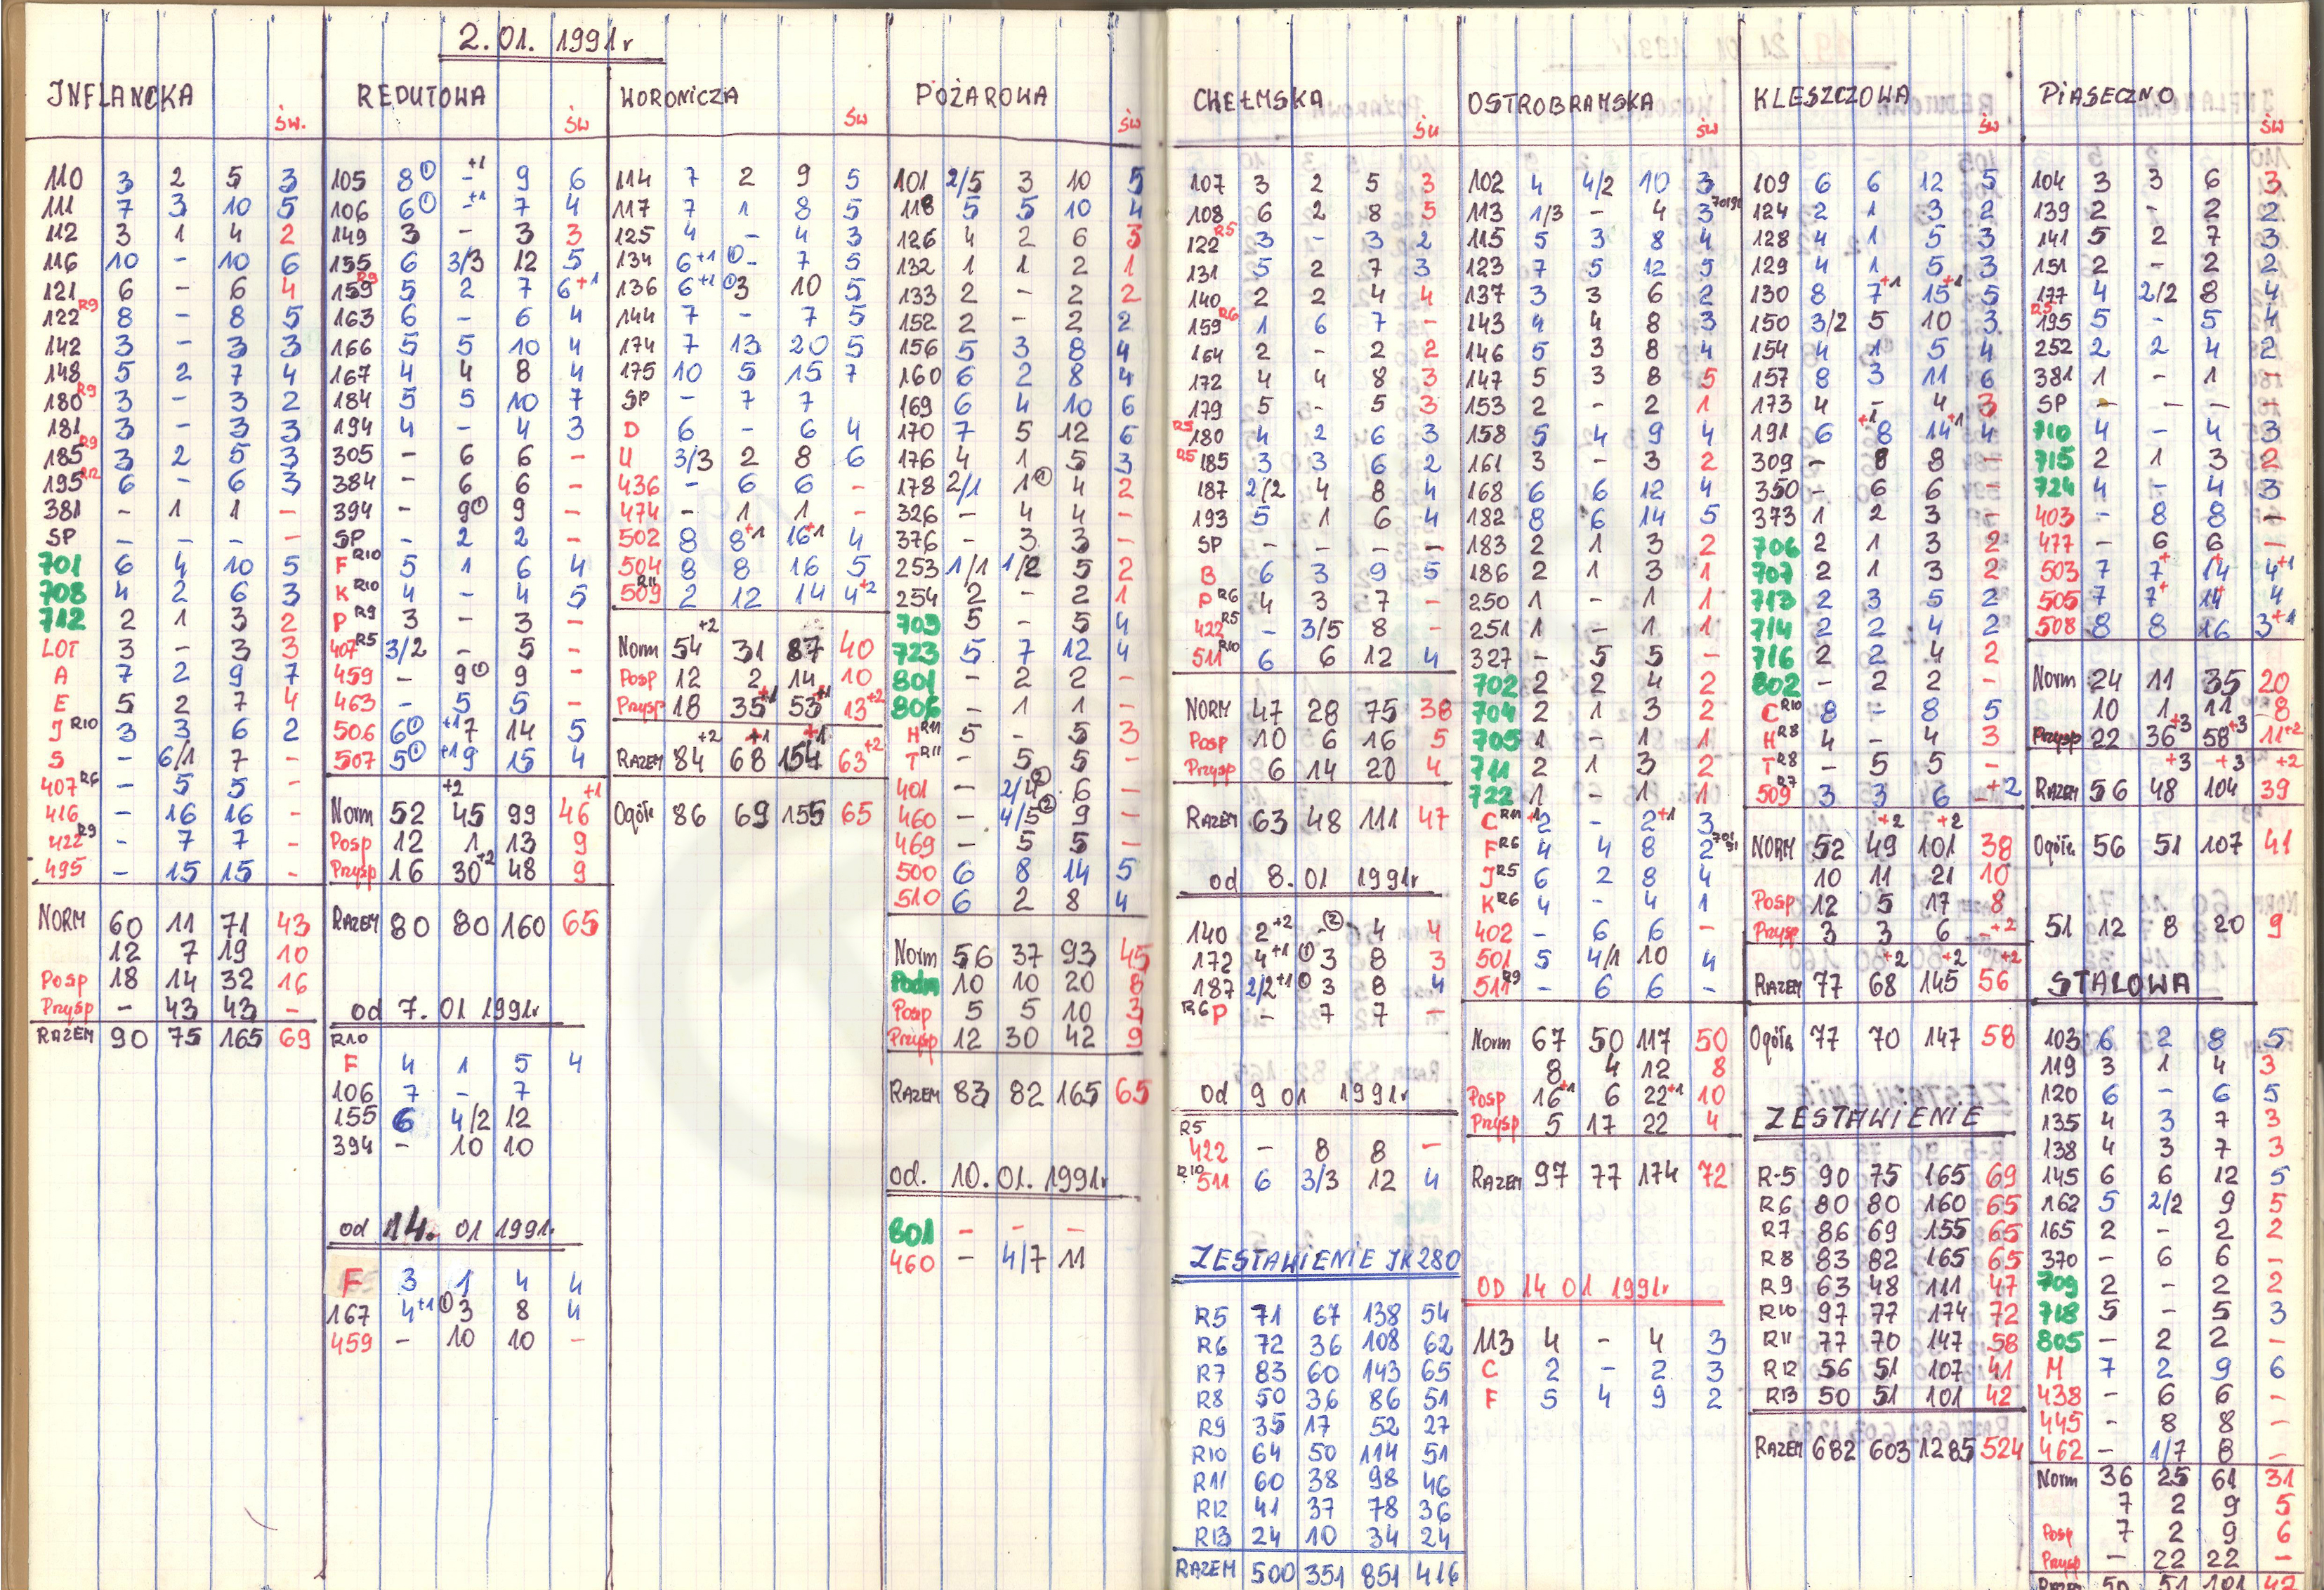 2.01. 1991r
JNFLANCKA
św.
110 3 2 5 3
111 7 3 10 5
112 3 1 4 2
116 10 - 10 6
121 6 - 6 4
122 R9 8 - 8 5
142 3 - 3 3
148 5 2 7 4
180 R9 3 - 3 2
181 3 - 3 3
185 R9 3 2 5 3
195 R12 6 - 6 3
381 - 1 1 -
SP - - - -
701 6 4 10 5
708 4 2 6 3
712 2 1 3 2
LOT 3 - 3 3
A 7 2 9 7
E 5 2 7 4
J R10 3 3 6 2
S - 6/1 7 -
407 R6 - 5 5 -
416 - 16 16 -
422 R9 - 7 7 -
495 - 15 15 -
NORM 60 11 71 43
12 7 19 10
Posp 18 14 32 16
Przysp - 43 43 -
RAZEM 90 75 165 69
REDUTOWA
św
105 8① -+1 9 6
106 6① -+1 7 4
149 3 - 3 3
155 6 3/3 12 5
159 R9 5 2 7 6+1
163 6 - 6 4
166 5 5 10 4
167 4 4 8 4
184 5 5 10 7
194 4 - 4 3
305 - 6 6 -
384 - 6 6 -
394 - 9① 9 -
SP - 2 2 -
F R10 5 1 6 4
K R10 4 - 4 5
P R9 3 - 3 -
407 R5 3/2 - 5 -
459 - 9① 9 -
463 - 5 5 -
506 6① +17 14 5
507 5① +19 15 4
Norm 52 45+2 99 46+1
Posp 12 1 13 9
Przysp 16 30+2 48 9
RAZEM 80 80 160 65
od 7. 01 1991r
R10
F 4 1 5 4
106 7 - 7
155 6 4/2 12
394 - 10 10
od 14. 01 1991r.
F 3 1 4 4
167 4+1 ①3 8 4
459 - 10 10 -
WORONICZA
św
114 7 2 9 5
117 7 1 8 5
125 4 - 4 3
134 6+1 ①- 7 5
136 6+1 ①3 10 5
144 7 - 7 5
174 7 13 20 5
175 10 5 15 7
SP - 7 7
D 6 - 6 4
U 3/3 2 8 6
436 - 6 6 -
474 - 1 1 -
502 8 8+1 16+1 4
504 8 8 16 5
509 R11 2 12 14 4+2
Norm 54+2 31 87 40
Posp 12 2 14 10
Przysp 18 35+1 53+1 13+2
RAZEM 84+2 68+1 154+1 63+2
Ogółe 86 69 155 65
POŻAROWA
św
101 2/5 3 10 5
118 5 5 10 4
126 4 2 6 3
132 1 1 2 1
133 2 - 2 2
152 2 - 2 2
156 5 3 8 4
160 6 2 8 4
169 6 4 10 6
170 7 5 12 6
176 4 1 5 3
178 2/1 1① 4 2
326 - 4 4 -
376 - 3 3 -
253 1/1 1/2 5 2
254 2 - 2 1
703 5 - 5 4
723 5 7 12 4
801 - 2 2 -
806 - 1 1 -
H R11 5 - 5 3
T R11 - 5 5 -
401 - 2/4② 6 -
460 - 4/5② 9 -
469 - 5 5 -
500 6 8 14 5
510 6 2 8 4
Norm 56 37 93 45
Podm 10 10 20 8
Posp 5 5 10 3
Przysp 12 30 42 9
RAZEM 83 82 165 65
od. 10. 01. 1991r
801 - - -
460 - 4/7 11
CHEŁMSKA
św
107 3 2 5 3
108 6 2 8 5
122 R5 3 - 3 2
131 5 2 7 3
140 2 2 4 4
159 R6 1 6 7 -
164 2 - 2 2
172 4 4 8 3
179 5 - 5 3
R5 180 4 2 6 3
R5 185 3 3 6 2
187 2/2 4 8 4
193 5 1 6 4
SP - - - -
B 6 3 9 5
P R6 4 3 7 -
422 R5 - 3/5 8 -
511 R10 6 6 12 4
NORM 47 28 75 38
Posp 10 6 16 5
Przysp 6 14 20 4
RAZEM 63 48 111 47
od 8. 01 1991r
140 2+2 -② 4 4
172 4+1 ①3 8 3
187 2/2+1 ①3 8 4
R6 P - 7 7 -
od 9 01 1991r
R5
422 - 8 8 -
R10 511 6 3/3 12 4
ZESTAWIENIE JK 280
R5 71 67 138 54
R6 72 36 108 62
R7 83 60 143 65
R8 50 36 86 51
R9 35 17 52 27
R10 64 50 114 51
R11 60 38 98 46
R12 41 37 78 36
R13 24 10 34 24
RAZEM 500 351 851 416
OSTROBRAMSKA
św
102 4 4/2 10 3
113 1/3 - 4 3
115 5 3 8 4
123 7 5 12 5
137 3 3 6 2
143 4 4 8 3
146 5 3 8 4
147 5 3 8 5
153 2 - 2 1
158 5 4 9 4
161 3 - 3 2
168 6 6 12 4
182 8 6 14 5
183 2 1 3 2
186 2 1 3 1
250 1 - 1 1
251 1 - 1 1
327 - 5 5 -
702 2 2 4 2
704 2 1 3 2
705 1 - 1 1
711 2 1 3 2
722 1 - 1 1
C R11 +12 - 2+1 3
F R6 4 4 8 2
J R5 6 2 8 4
K R6 4 - 4 1
402 - 6 6 -
501 5 4/1 10 4
511 R9 - 6 6 -
Norm 67 50 117 50
8 4 12 8
Posp 16+1 6 22+1 10
Przysp 5 17 22 4
RAZEM 97 77 174 72
OD 14 01 1991r
113 4 - 4 3
C 2 - 2 3
F 5 4 9 2
KLESZCZOWA
św
109 6 6 12 5
124 2 1 3 2
128 4 1 5 3
129 4 1 5 3
130 8 7+1 15+1 5
150 3/2 5 10 3
154 4 1 5 4
157 8 3 11 6
173 4 - 4 3
191 6 8+1 14+1 4
309 - 8 8 -
350 - 6 6 -
373 1 2 3 -
706 2 1 3 2
707 2 1 3 2
713 2 3 5 2
714 2 2 4 2
716 2 2 4 2
802 - 2 2 -
C R10 8 - 8 5
H R8 4 - 4 3
T R8 - 5 5 -
509 R7 3 3 6 -+2
NORM 52 49+2 101+2 38
10 11 21 10
Posp 12 5 17 8
Przysp 3 3 6 -+2
RAZEM 77 68+2 145+2 56+2
Ogółe 77 70 147 58
ZESTAWIENIE
R-5 90 75 165 69
R6 80 80 160 65
R7 86 69 155 65
R8 83 82 165 65
R9 63 48 111 47
R10 97 77 174 72
R11 77 70 147 58
R12 56 51 107 41
R13 50 51 101 42
RAZEM 682 603 1285 524
PIASECZNO
św
104 3 3 6 3
139 2 - 2 2
141 5 2 7 3
151 2 - 2 2
177 4 2/2 8 4
R5 195 5 - 5 4
252 2 2 4 2
381 1 - 1 -
SP - - - -
710 4 - 4 3
715 2 1 3 2
724 4 - 4 3
403 - 8 8 -
477 - 6 6 -
503 7 7+ 14+ 4+1
505 7 7+ 14+ 4
508 8 8 16 3+1
Norm 24 11 35 20
10 1 11 8
Przysp 22 36+3 58+3 11+2
RAZEM 56 48+3 104+3 39+2
Ogółe 56 51 107 41
51 12 8 20 9
STALOWA
103 6 2 8 5
119 3 1 4 3
120 6 - 6 5
135 4 3 7 3
138 4 3 7 3
145 6 6 12 5
162 5 2/2 9 5
165 2 - 2 2
370 - 6 6 -
709 2 - 2 2
718 5 - 5 3
805 - 2 2 -
M 7 2 9 6
438 - 6 6 -
445 - 8 8 -
462 - 1/7 8 -
Norm 36 25 61 31
7 2 9 5
Posp 7 2 9 6
Przysp - 22 22 -
RAZEM 50 51 101 42